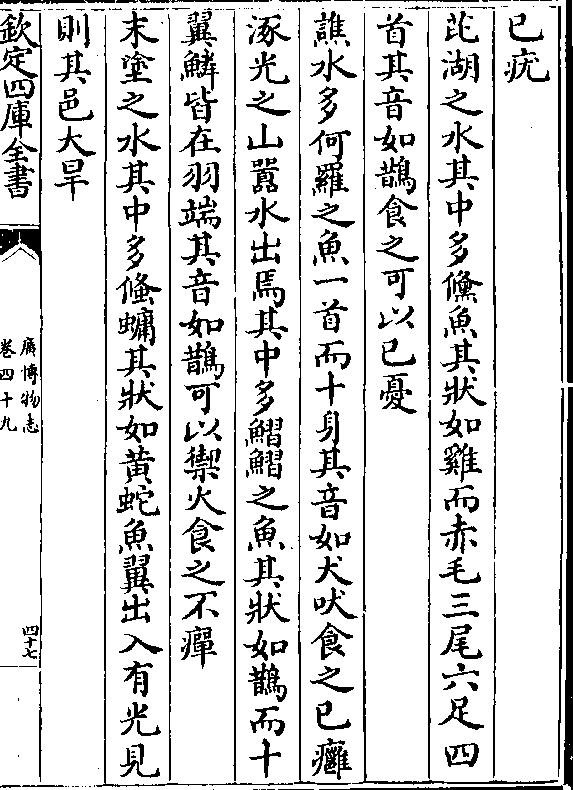 已疣
茈湖之水其中多儵魚其狀如雞而赤毛三尾六足四
首其音如鵲食之可以已憂
譙水多何羅之魚一首而十身其音如犬吠食之已癰
涿光之山嚻水出焉其中多鰼鰼之魚其狀如鵲而十
翼鱗皆在羽端其音如鵲可以禦火食之不癉
末塗之水其中多偹䗤其狀如黄蛇魚翼出入有光見
則其邑大旱
欽定四庫全書
廣博物志
卷四十九
四十七